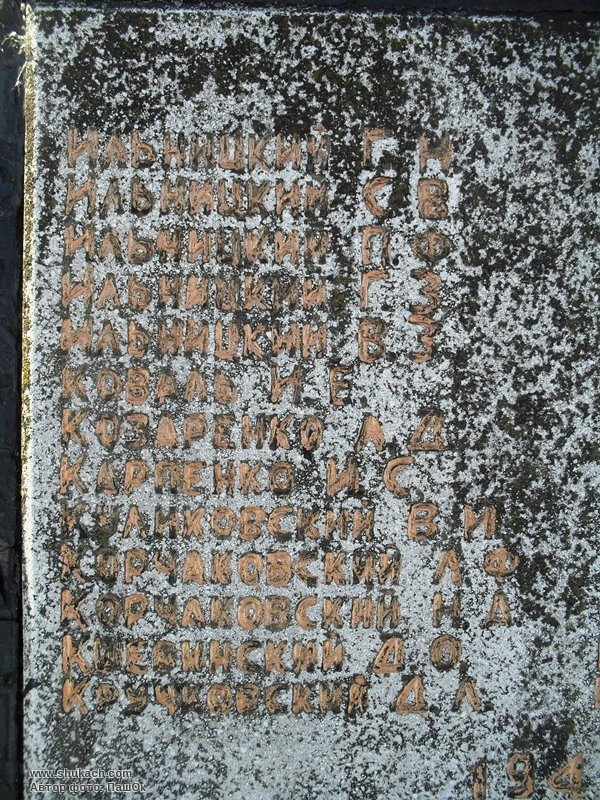 ИЛЬНИЦКИЙ Г Н
ИЛЬНИЦКИЙ С В
ИЛЬНИЦКИЙ П Ф
ИЛЬНИЦКИЙ Г З
ИЛЬНИЦКИЙ В З
КОВАЛЬ И Е
КОЗАРЕНКО А Д
КАРПЕНКО И С
КУЛИКОВСКИЙ В И
КОРЧАКОВСКИЙ Л Ф
КОРЧАКОВСКИЙ Н Д
КШЕВИНСКИЙ Д О
КРУЧКОВСКИЙ Д Л
194
www.shukach.com
Автор фото: ПашОк